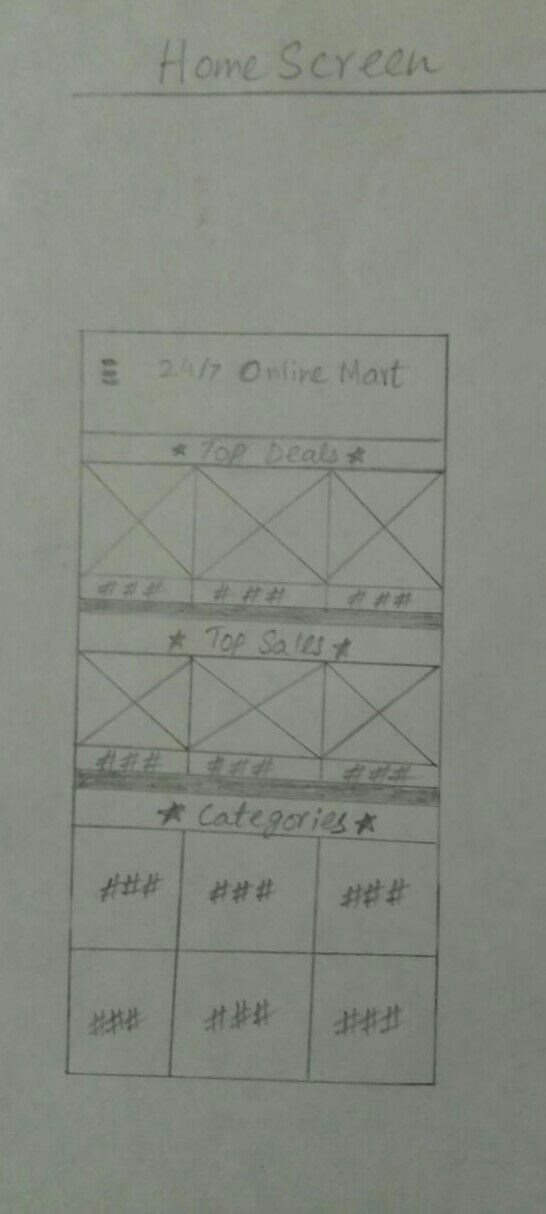 Home Screen
24/7 Online Mart
★ Top Deals ★
### ### ###
★ Top Sales ★
### ### ###
★ Categories ★
### ### ###
### ### ###